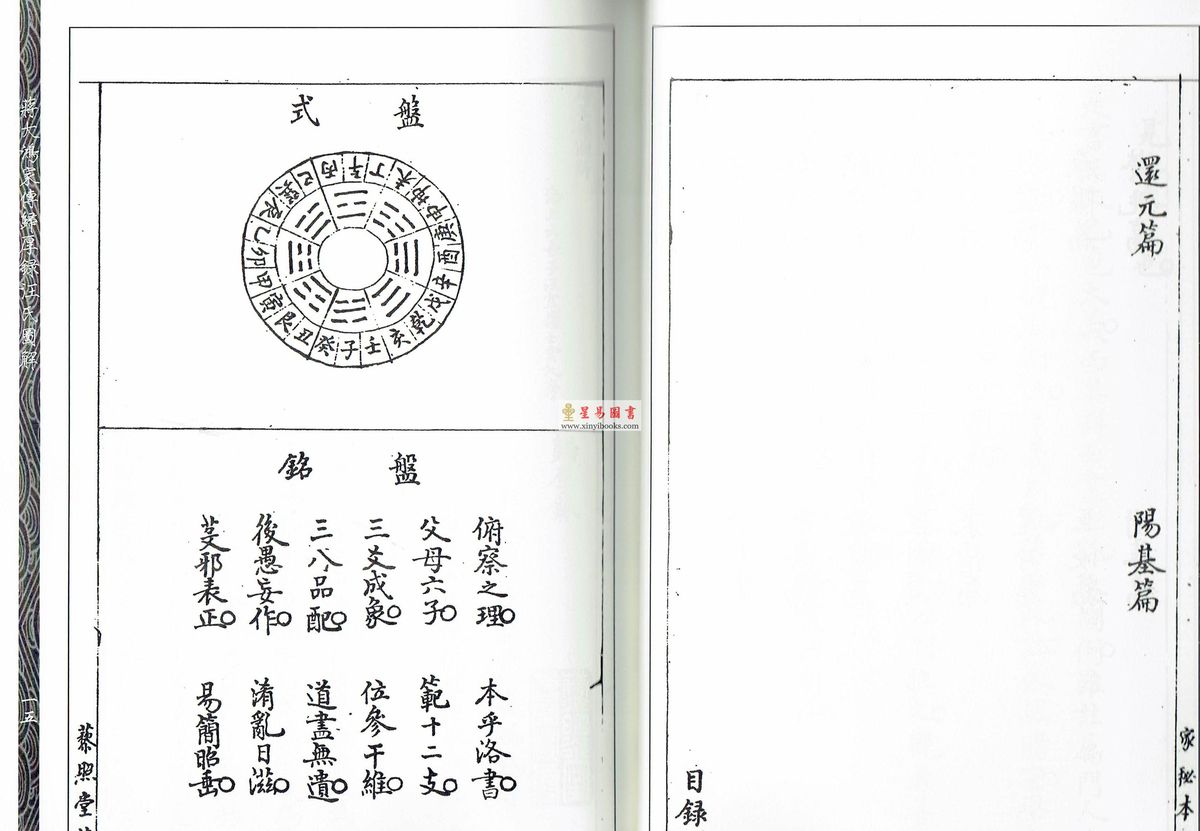 還元篇
陽基篇
目録
家秘本
盤式
丙
午
丁
未
坤
申
庚
酉
辛
戌
乾
亥
壬
子
癸
丑
艮
寅
甲
卯
乙
辰
巽
巳
盤銘
俯察之理○本乎洛書○
父母六子○範十二支○
三爻成象○位參干維○
三八品配○道盡無遺○
後愚妄作○淆亂日滋○
芟邪表正○易簡昭垂○
藜照堂
一五
星易圖書
www.xinyibooks.com